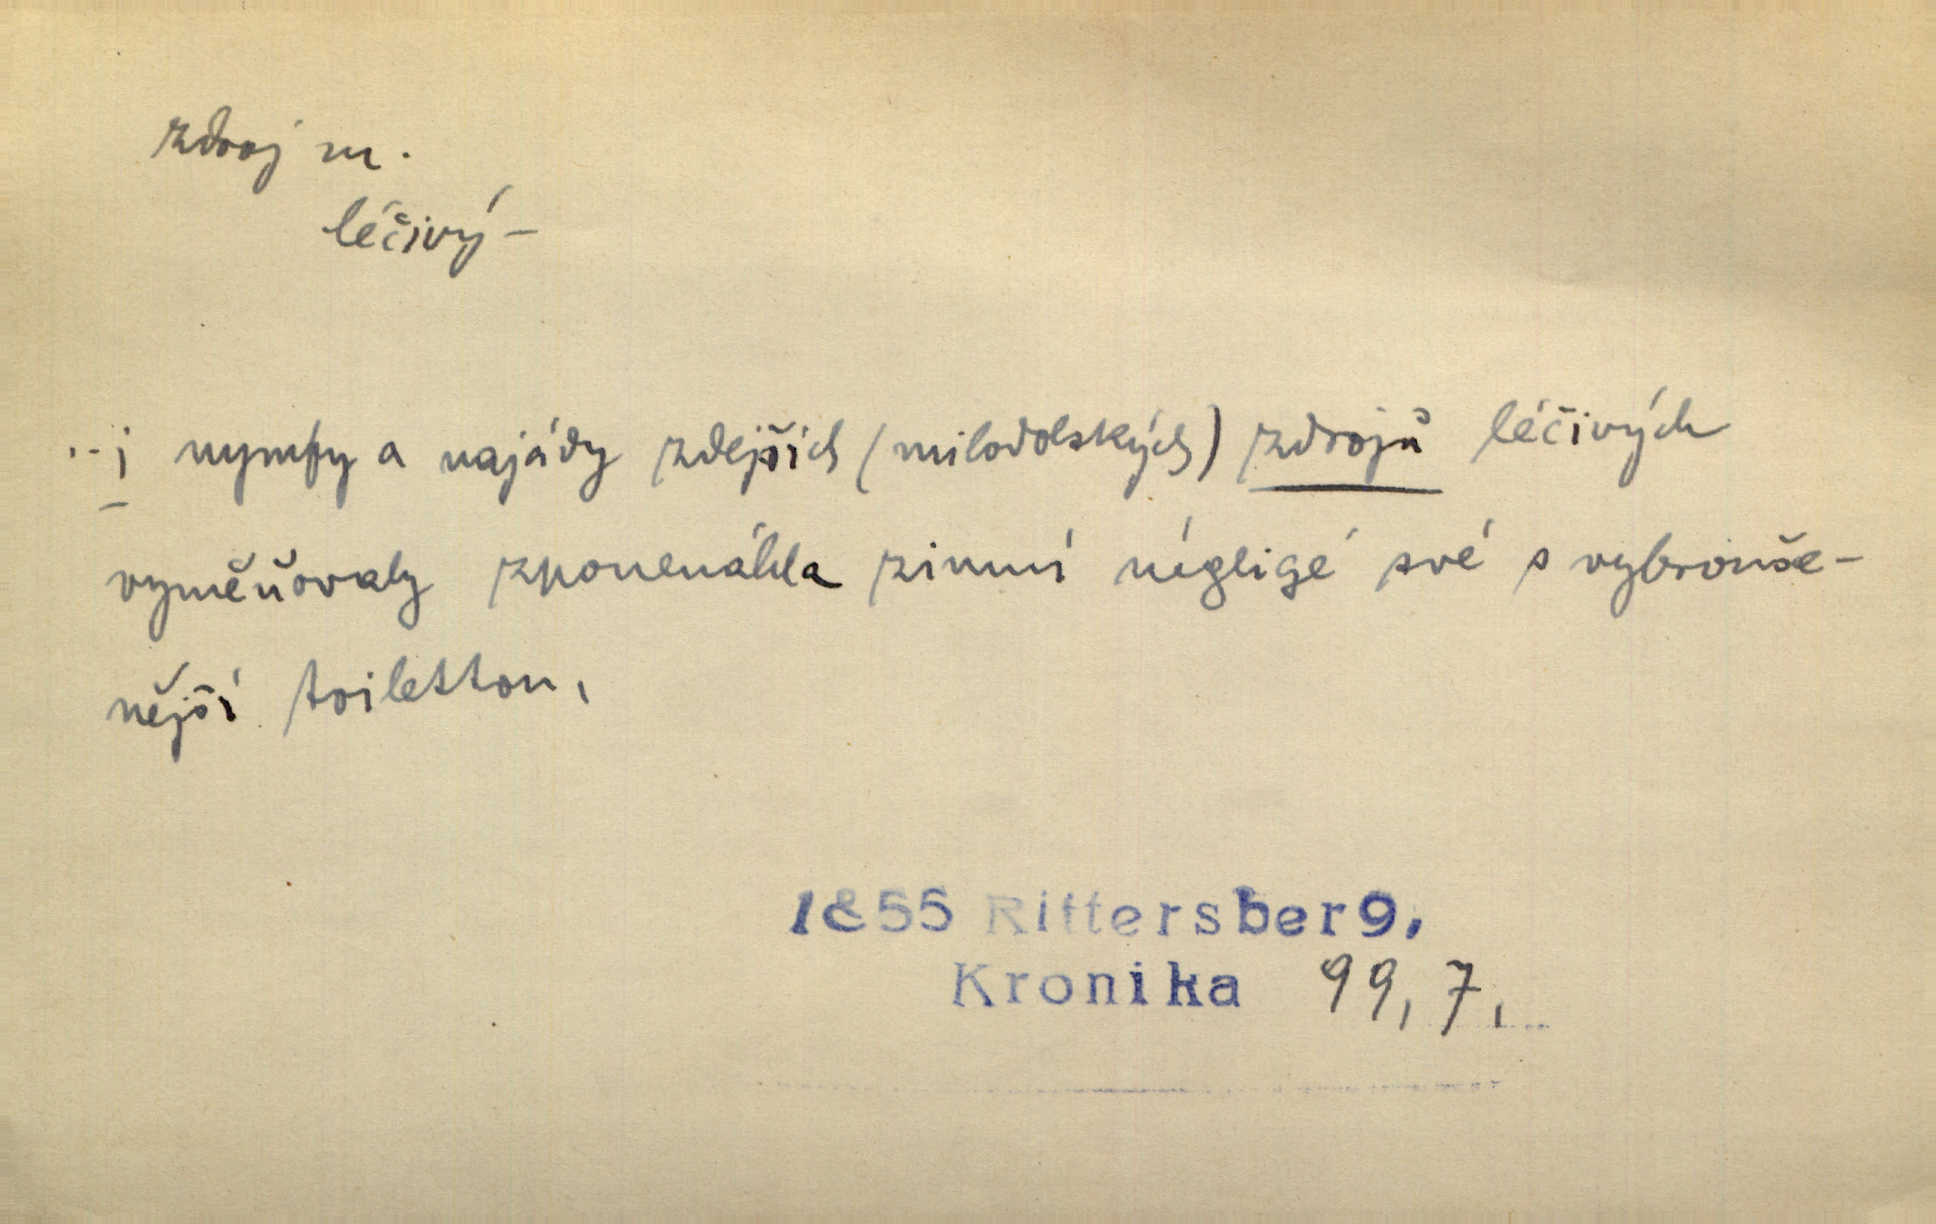 zdroj m.
léčivý –
... i nymfy a najády zdejších (milodolských) zdrojů léčivých
vyměňovaly zponenáhla zimní négligé své s vybrouše-
nější toilettou,
1855 Rittersberg,
Kronika 99, 7,